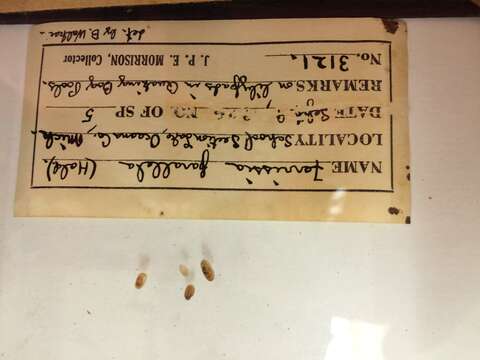 NAME Ferrissia parallela (Hald).
LOCALITY School Section Lake, Oceana Co., Mich.
DATE Sept. NO. OF SP 5
REMARKS on lilypads in Quaking Bog Pools.
No. 3121. J. P. E. MORRISON, Collector
det. by B. Walker.